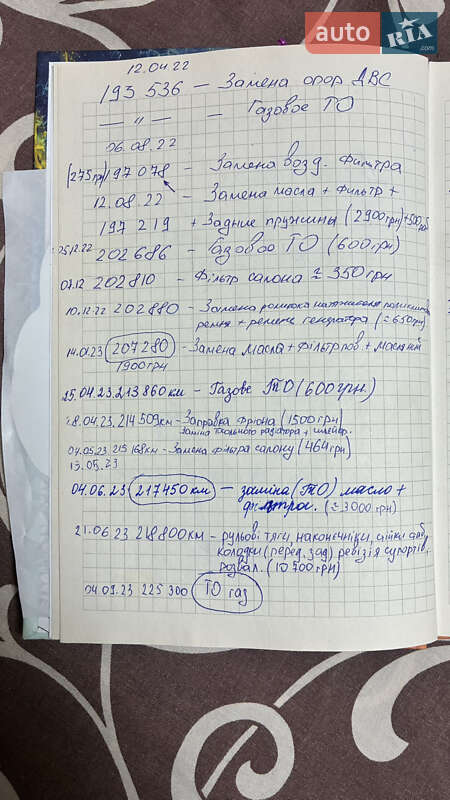 auto RIA.com
12.04.22
193 536 – Замена опор ДВС
— " — – Газовое ТО
06.08.22
(275грн) 197 078 – Замена возд. Фильтра
12.08.22 – Замена масла + Фильтр +
197 219 + Задние пружины (2900грн) +500
25.12.22 202 686 – Газовое ТО (600грн)
07.12 202810 – Фільтр салона ≈ 350грн
10.12.22 202880 – Замена ролика натяжителя
ремня + ремень генератора (≈650грн)
14.01.23 207280 – Замена масла + Фільтр пов. + масляній
1900грн
25.04.23 213 860 км – Газове ТО (600грн.)
28.04.23. 214 509км – Заправка фріона (1500грн)
заміна радіатора +
07.05.23 215 168км – Замена фільтра салону (464грн)
13.05.23
04.06.23 217450 км – заміна (ТО) масло +
фильтрос. (≈ 3000 грн)
21.06.23 218800км – рульові тяги, наконєчніки,
колодки (перед, зад) ревізія супортів,
розвал. (10 500грн)
04.09.23 225 300 ТО газ